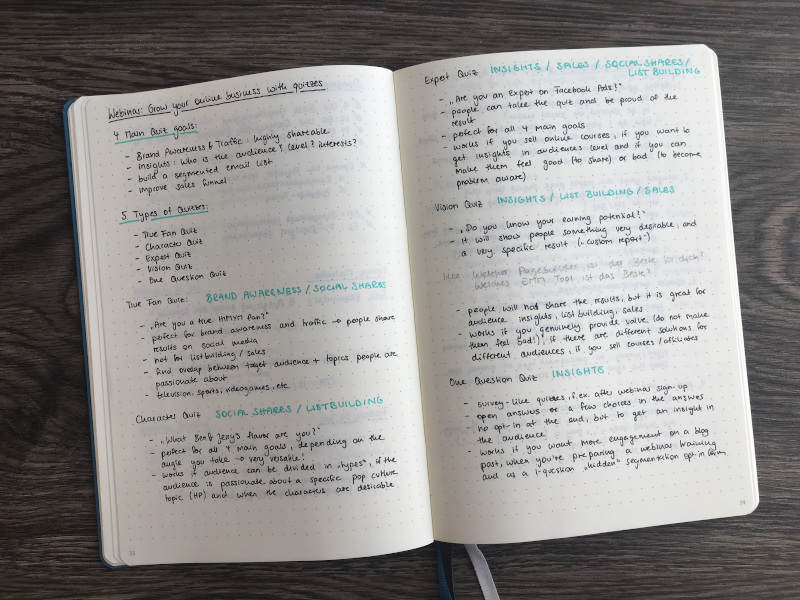 Webinar: Grow your online business with quizzes
4 Main Quiz goals:
- Brand Awareness & Traffic: highly shareable
- insights: who is the audience? level? interests?
- build a segmented email list
- improve sales funnel
5 Types of Quizzes:
- True Fan Quiz
- Character Quiz
- Expert Quiz
- Vision Quiz
- One Question Quiz
True Fan Quiz: BRAND AWARENESS / SOCIAL SHARES
- „Are you a true HIMYM fan?"
- perfect for brand awareness and traffic → people share
results on social media
- not for listbuilding / sales
- find overlap between target audience + topics people are
passionate about
- television, sports, videogames, etc.
Character Quiz SOCIAL SHARES / LISTBUILDING
- „What Ben & Jerry's flavor are you?"
- perfect for all 4 main goals, depending on the
angle you take → very versatile!
- works if audience can be divided in „types", if the
audience is passionate about a specific pop culture
topic (HP) and when the characters are desirable
33
Expert Quiz INSIGHTS / SALES / SOCIAL SHARES /
LIST BUILDING
- „Are you an Expert on Facebook Ads?"
- people can take the quiz and be proud of the
result
- perfect for all 4 main goals
- works if you sell online courses, if you want to
get insights in audiences level and if you can
make them feel good (to share) or bad (to become
problem aware)
Vision Quiz INSIGHTS / LIST BUILDING / SALES
- „Do you know your earning potential?"
- it will show people something very desirable, and
a very specific result („custom report")
Idee: Welcher Pagebuilder ist der Beste für dich?
Welches EMM Tool ist das Beste?
- people will not share the results, but it is great for
audience insights, list building, sales
- works if you genuinely provide value (do not make
them feel bad!), if there are different solutions for
different audiences, if you sell courses / affiliates
One Question Quiz INSIGHTS
- survey-like quizzes, f.ex. after webinar sign-up
- open answers or a few choices in the answers
- no opt-in at the end, but to get an insight in
the audience
- works if you want more engagement on a blog
post, when you're preparing a webinar training
and as a 1-question „hidden" segmentation opt-in form
34